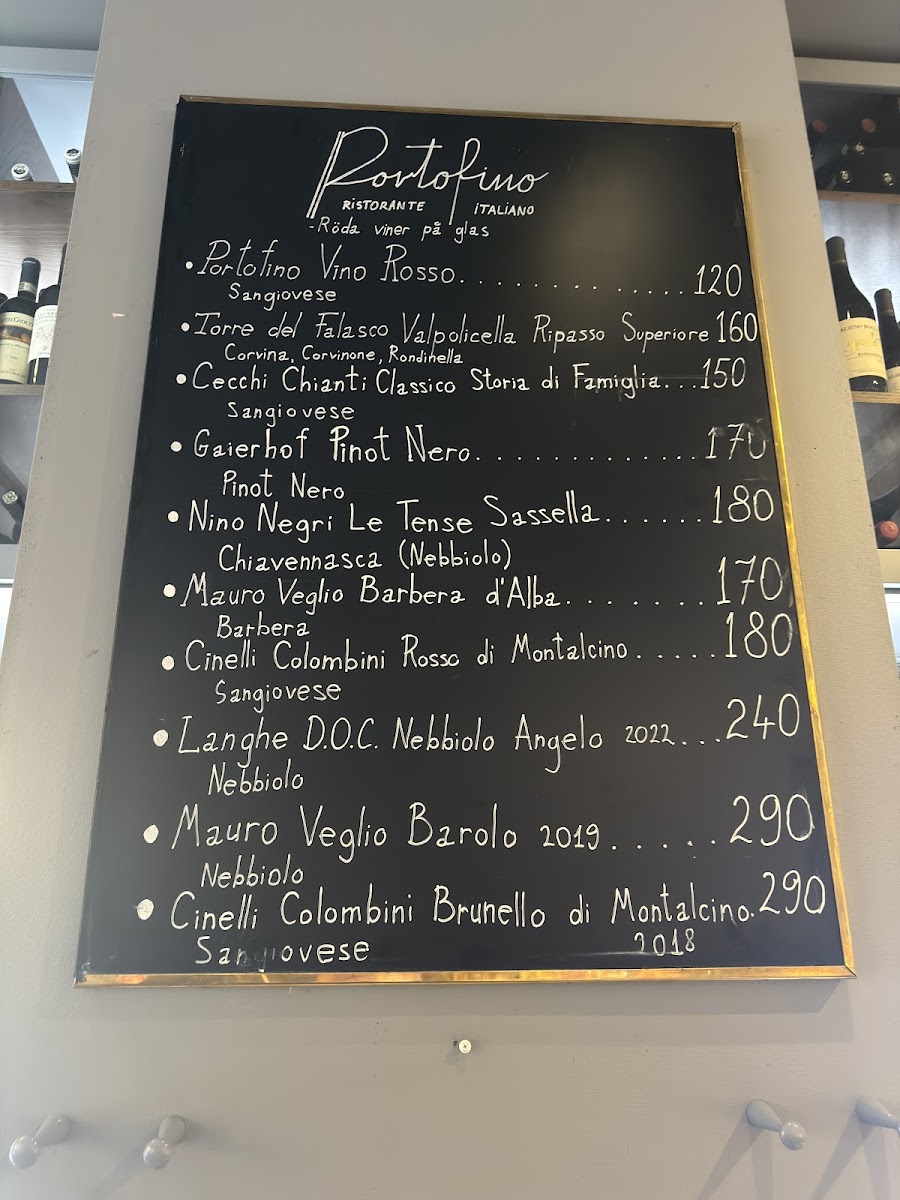 Portofino
RISTORANTE ITALIANO
-Röda viner på glas
•Portofino Vino Rosso..............120
Sangiovese
•Torre del Falasco Valpolicella Ripasso Superiore 160
Corvina, Corvinone, Rondinella
•Cecchi Chianti Classico Storia di Famiglia...150
Sangiovese
•Gaierhof Pinot Nero..............170
Pinot Nero
•Nino Negri Le Tense Sassella......180
Chiavennasca (Nebbiolo)
•Mauro Veglio Barbera d'Alba.......170
Barbera
•Cinelli Colombini Rosso di Montalcino.....180
Sangiovese
•Langhe D.O.C. Nebbiolo Angelo 2022...240
Nebbiolo
•Mauro Veglio Barolo 2019.....290
Nebbiolo
•Cinelli Colombini Brunello di Montalcino.290
Sangiovese 2018